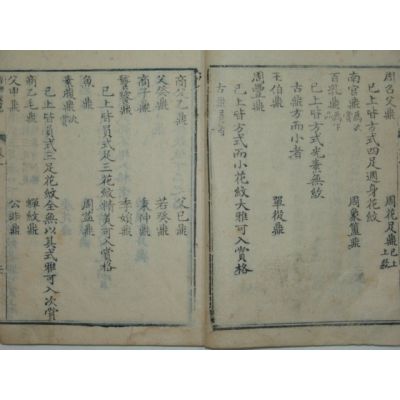 周召父鼎 周花足鼎已上上款
已上皆方式四足週身花紋
南宮鼎為次 周象簠鼎
百乳鼎為下
已上皆方式光素無紋
古鼎方而小者
王伯鼎 單從鼎
周豐鼎
已上皆方式而小花紋大雅可入賞格
商父乙鼎 父已鼎
父癸鼎 若癸鼎
商子鼎 秉仲鼎
饕餮鼎 李娟鼎
魚鼎 周益鼎
已上皆員式足三花紋精美可入賞格
素腹鼎次
已上皆員式三足花紋全無以其式雅可入次賞
商乙毛鼎 蟬紋鼎
父甲鼎 公非鼎